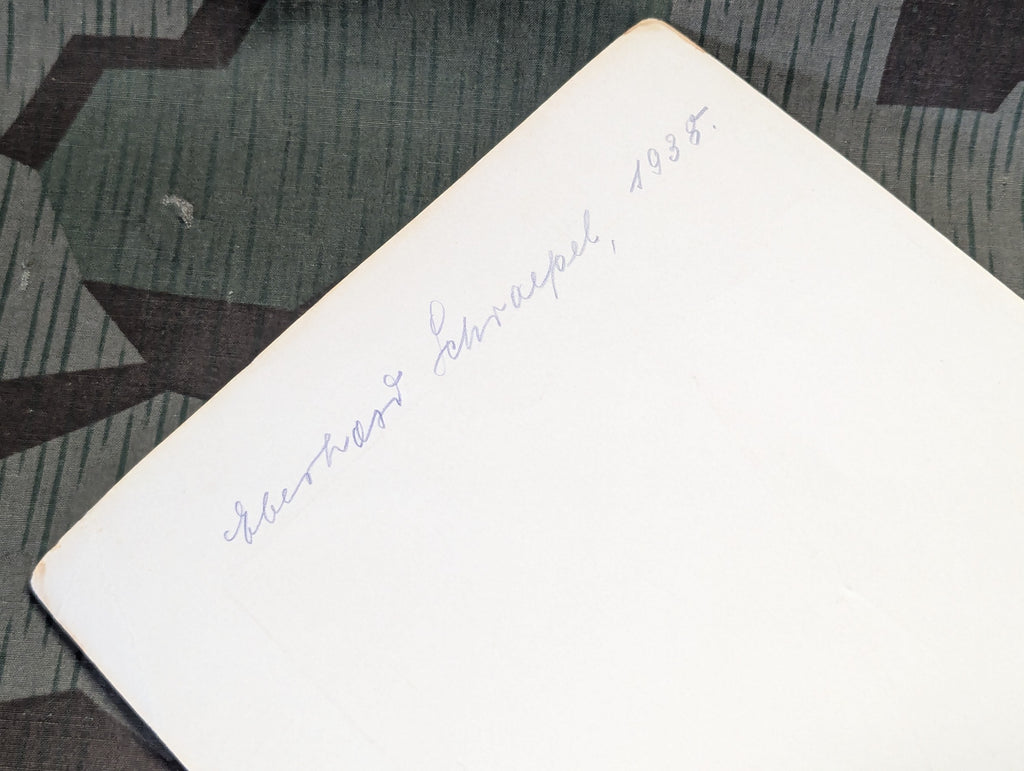 Eberhard Schraepel, 1935.